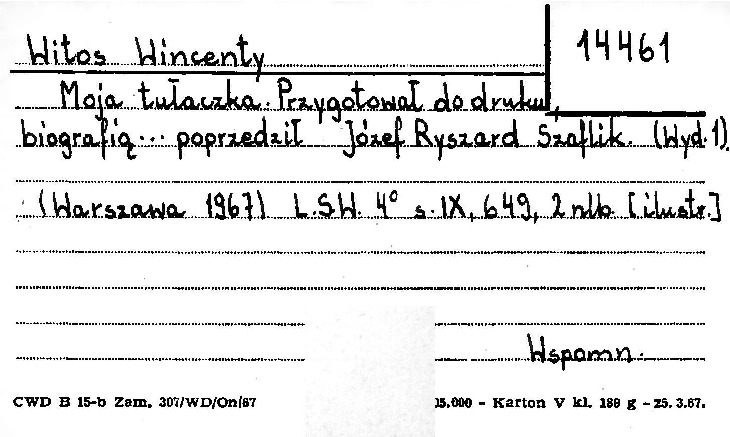 Witos Wincenty
14461
Moja tułaczka. Przygotował do druku,
biografią... poprzedził Józef Ryszard Szaflik. (Wyd. 1).
(Warszawa 1967) L.S.W. 4° s. IX, 649, 2 nlb. [ilustr.]
Wspomn.
CWD B 15-b Zam. 307/WD/On/67 35.000 - Karton V kl. 180 g - 25.3.67.